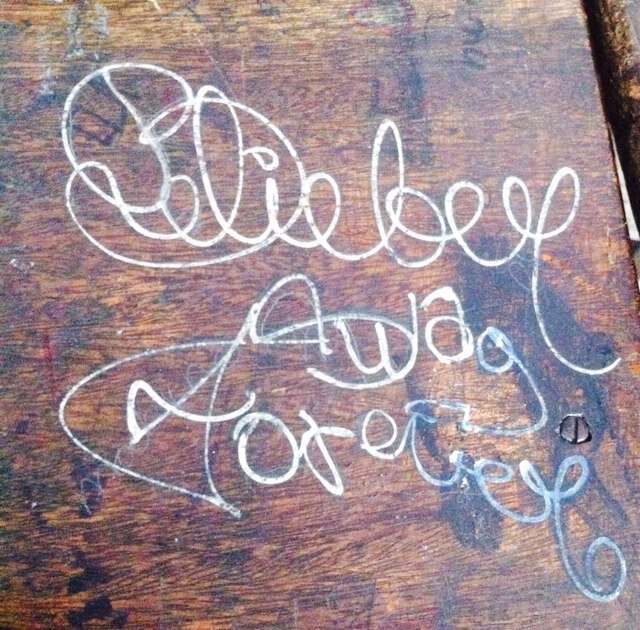 Beliebey
Away
Forever